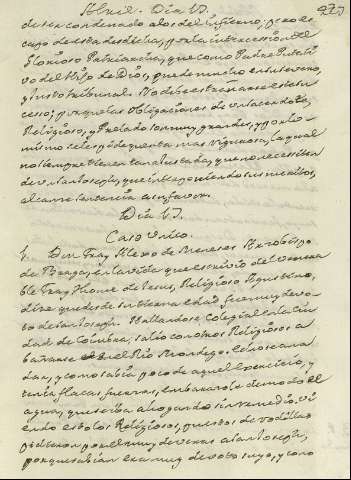 Abril. Dia 17.
de ser condenado a los del Infierno; pero es-
capo de esta desdicha, por la intercession del
Glorioso Patriarcha, que como Padre Putati-
vo del Hijo de Dios, puede mucho en su
y justo tribunal. No debe estrañarse este su-
ceso; porque las obligaciones de un Sacerdote,
Religioso, y Prelado son muy grandes, y por lo
mismo celes pide cuenta mas rigurosa, la qual
no siempre tienen tan ajustada, que no necessiten
de un tan que interponiendo sus meritos,
alcance sentencia en su favor.
Dia 17.
Caso Unico.
Don Fray Alexo de Meneses Arzobispo
de Braga, en la vida que escrivio del Venera-
ble Fray Thome de Jesus, Religioso Agustino,
dize que desde su tierna edad fue muy devo-
to de San Joseph. Hallandose Colegial en la Ciu-
dad de Coimbra, salio con otros Religiosos a
bañarse en el Rio Mondego. Echose a na-
dar, y como sabia poco de aquel exercicio, y
tenia flacas fuerzas, embarazole de modo el
agua, que se iba ahogando sin remedio. Vi-
endo esto los Religiosos, puestos de rodillas
pidieron por el muy de veras a San Joseph,
porque sabian era muy devoto suyo, y como